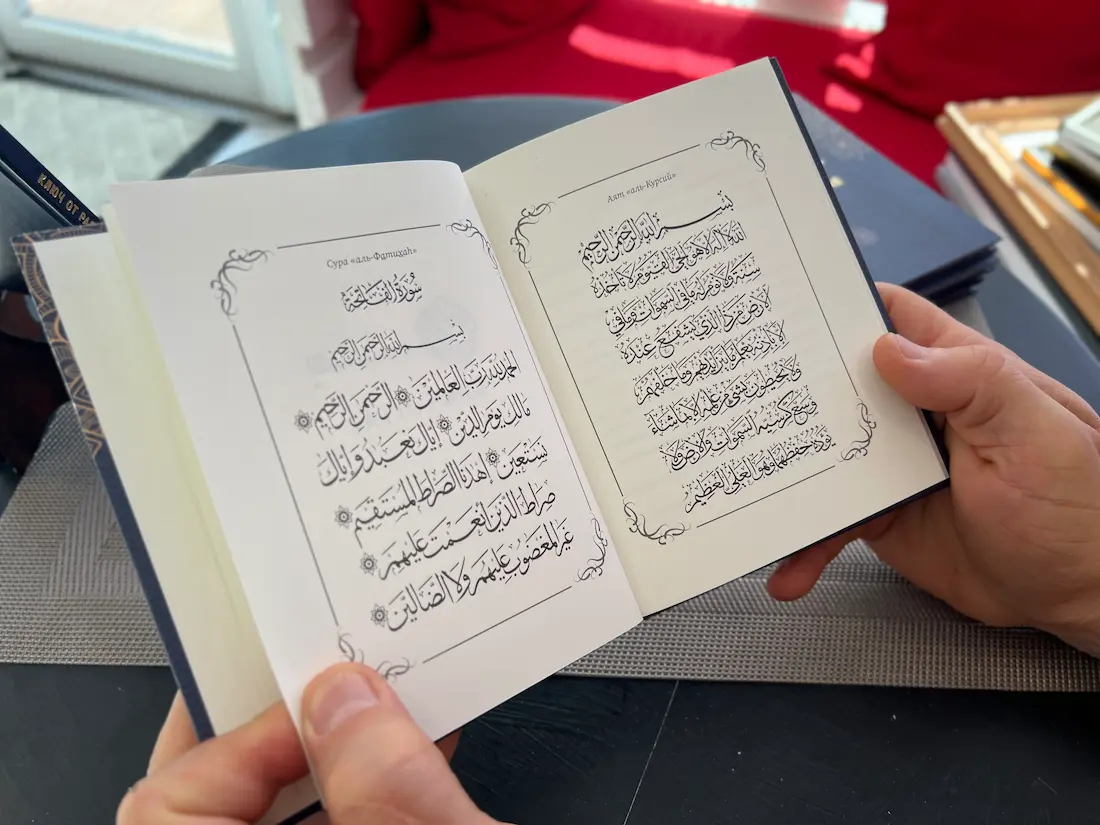 КЛЮЧ ОТ
Сура «аль-Фатиҳаһ»
سُورَةُ الْفَاتِحَةِ
بِسْمِ اللهِ الرَّحْمَنِ الرَّحِيمِ
الْحَمْدُ لِلهِ رَبِّ الْعَالَمِينَ ۞ الرَّحْمَنِ الرَّحِيمِ ۞
مَالِكِ يَوْمِ الدِّينِ ۞ إِيَّاكَ نَعْبُدُ وَإِيَّاكَ
نَسْتَعِينُ ۞ اهْدِنَا الصِّرَاطَ الْمُسْتَقِيمَ ۞
صِرَاطَ الَّذِينَ أَنْعَمْتَ عَلَيْهِمْ ۞
غَيْرِ الْمَغْضُوبِ عَلَيْهِمْ وَلَا الضَّالِّينَ ۞
Аят «аль-Курсий»
بِسْمِ اللهِ الرَّحْمَنِ الرَّحِيمِ
اللهُ لَا إِلَهَ إِلَّا هُوَ الْحَيُّ الْقَيُّومُ لَا تَأْخُذُهُ
سِنَةٌ وَلَا نَوْمٌ لَهُ مَا فِي السَّمَوَاتِ وَمَا فِي
الْأَرْضِ مَنْ ذَا الَّذِي يَشْفَعُ عِنْدَهُ
إِلَّا بِإِذْنِهِ يَعْلَمُ مَا بَيْنَ أَيْدِيهِمْ وَمَا خَلْفَهُمْ
وَلَا يُحِيطُونَ بِشَيْءٍ مِنْ عِلْمِهِ إِلَّا بِمَا شَاءَ
وَسِعَ كُرْسِيُّهُ السَّمَوَاتِ وَالْأَرْضَ وَلَا
يَؤُدُهُ حِفْظُهُمَا وَهُوَ الْعَلِيُّ الْعَظِيمُ